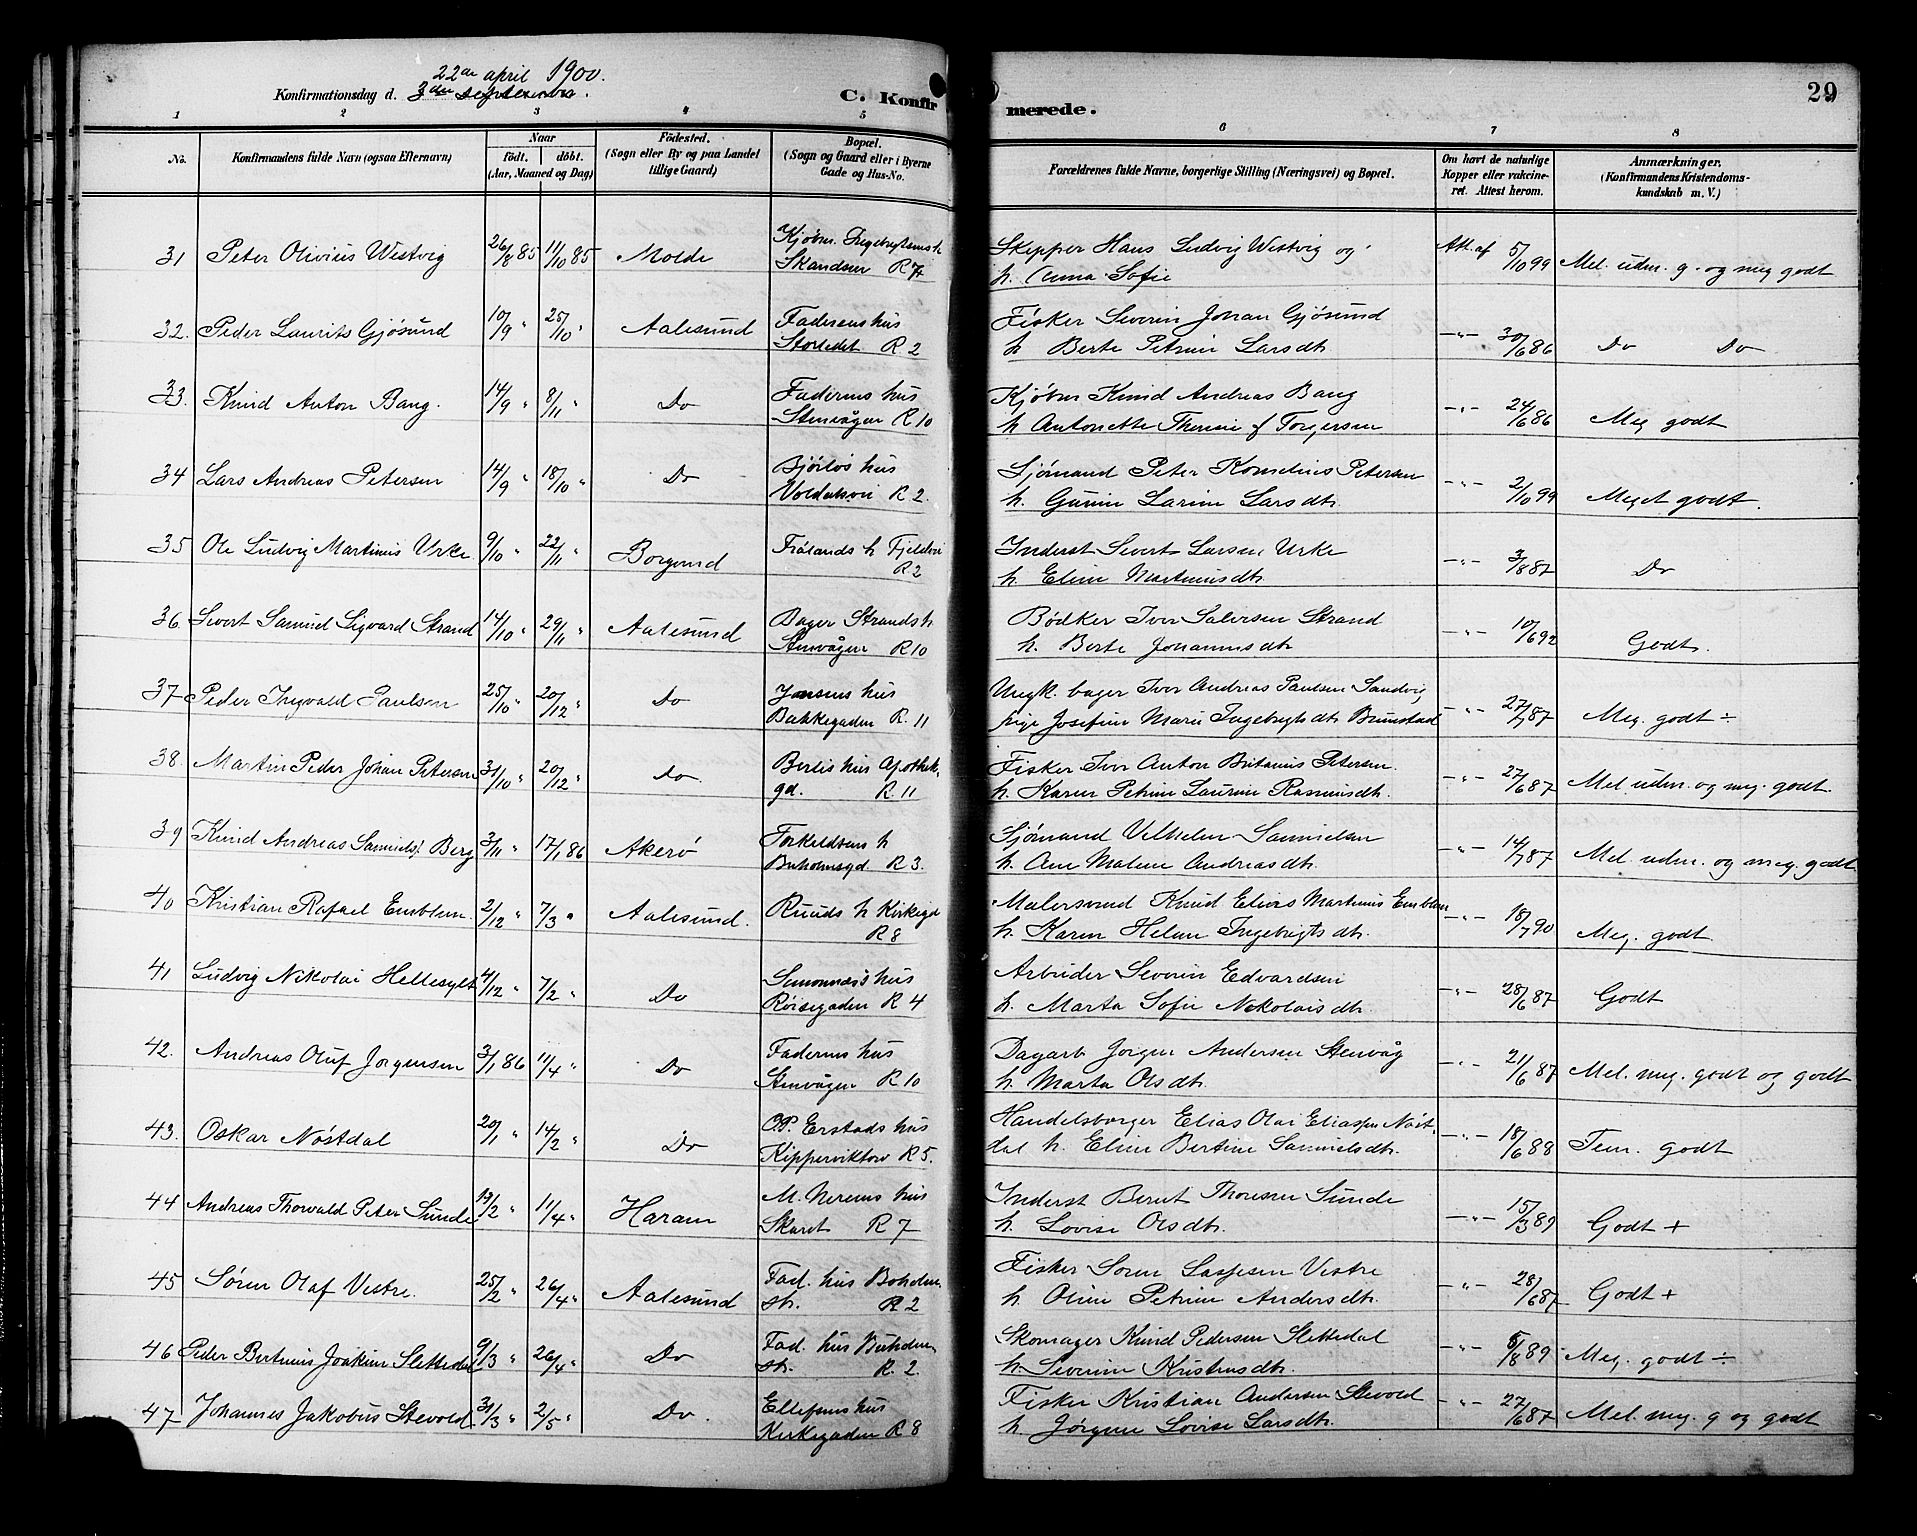 22de april 1900.
Konfirmationsdag d. 3die september.
C. Konfirmerede.
29
1 2 3 4 5 6 7 8
No.
Konfirmandens fulde Navn (ogsaa Efternavn)
Naar
födt. döbt.
(Aar, Maaned og Dag)
Födested.
(Sogn eller By og paa Landet
tillige Gaard)
Bopæl.
(Sogn og Gaard eller i Byerne
Gade og Hus-No.
Forældrenes fulde Navne, borgerlige Stilling (Næringsvei) og Bopæl.
Om havt de naturlige
Kopper eller vakcine-
ret. Attest herom.
Anmærkninger.
(Konfirmandens Kristendoms-
kundskab m. V.)
31 Peter Olivius Westvig 26/8 85 11/10 85 Molde Kjöbm. Ingebrigtsens h
Skandsen R 7 Skipper Hans Ludvig Westvig og
h. Anna Sofie Att. af 5/10 99 Mel. udm. g. og meg godt
32. Peder Laurits Gjøsund 10/9 " 25/10 " Aalesund Faderens hus
Storledet R 2 Fisker Severin Johan Gjøsund
h Berte Petrine Larsdtr. -"- 30/6 86 Do Do
33. Knud Anton Bang. 14/9 " 8/11 " Do Faderens hus
Stenvågen R 10 Kjøbm Knud Andreas Bang
h Antonette Therese f Torgersen -"- 24/6 86 Meg godt
34 Lars Andreas Petersen 14/9 " 18/10 " Do Bjørlos hus
R 2. Sjømand Peter Kornelius Petersen
h. Gurine Larine Larsdtr. -"- 2/10 99 Meget godt.
35 Ole Ludvig Martinus Urke 9/10 " 22/11 " Borgund Frølands h
R 2 Inderst Sivert Larsen Urke
h. Eline Martinusdtr. -"- 3/8 87 Do
36. Sivert Samuel Sigvard Strand 14/10 " 29/11 " Aalesund Bager Strands h
Stenvågen R 10 Bødker Iver Salersen Strand
h. Berte Johannesdtr. -"- 10/6 92 Godt.
37 Peder Ingvald Paulsen 25/10 " 20/12 " Do Jensens hus
Bakkegaden R. 11 Ungk. bager Iver Andreas Paulsen Sandvig
pige Josefine Marie Ingebrigtsdtr. Brunstad -"- 27/7 87 Meg. godt ÷
38. Martin Peder Johan Petersen 31/10 " 20/12 " Do Berlis hus Apothek.
gd. R. 11 Fisker Iver Anton Britanus Petersen.
h. Karen Petrine Laurine Rasmusdtr. -"- 27/6 87 Mel. udm. og meg. godt.
39 Knud Andreas Samuels. Berg 3/11 " 17/1 86 Akerø Torkeldsens h
Buholmsgd. R 3. Sjømand Vilhelm Samuelsen
h. Ane Malene Andreasdtr. -"- 14/7 87 Mel. udm. og meg. godt
40 Kristian Rafael Emblem 2/12 " 7/3 " Aalesund. Ruuds h Kirkegd
R 8 Malersvend Knud Elias Martinus Emblem
h. Karen Helene Ingebrigtsdtr. -"- 18/7 90 Meg. godt
41 Ludvig Nikolai Hellesylt 4/12 " 7/2 " Do Simonnæs's hus
Röisegaden R 4 Arbeider Severin Edvardsen
h. Marta Sofie Nikolaisdtr. -"- 28/6 87 Godt
42. Andreas Oluf Jørgensen 3/1 86 11/4 " Do Faderens hus
Stenvågen R 10 Dagarb Jørgen Andersen Stenvåg
h. Marta Olsdtr. -"- 21/6 87 Mel. meg. godt og godt
43. Oskar Nøstdal 20/1 " 14/2 " Do O.P. Erstads hus
Kipperviktorv R 5. Handelsborger Elias Olai Eliassen Nøst-
dal h. Eline Bertine Samuelsdtr. -"- 18/6 88 Tem. godt
44 Andreas Thorvald Peter Sunde 19/2 " 11/4 " Haram M. Nerems hus
Skaret R 7 Inderst Bernt Thoresen Sunde
h. Lovise Olsdtr. -"- 15/3 89 Godt +
45 Søren Olaf Vestre. 25/2 " 26/4 " Aalesund Fad. hus Boholm.
str. R 2 Fisker Søren Lassesen Vestre
h. Oline Petrine Andersdtr. -"- 28/6 87 Godt +
46 Peder Bertinus Joakim Slettedal 9/3 " 26/4 " Do Fad. hus Buholm.
str. R. 2. Skomager Knud Pedersen Slettedal
h. Severine Kristensdtr. -"- 5/8 89 Meg. godt ÷
47 Johannes Jakobus Stevold 31/3 " 2/5 " Do. Ellefsens hus
Kirkegaden R 8 Fisker Kristian Andersen Stevold
h. Jørgine Lovise Larsdtr. -"- 27/6 87 Mel. meg. g og godt